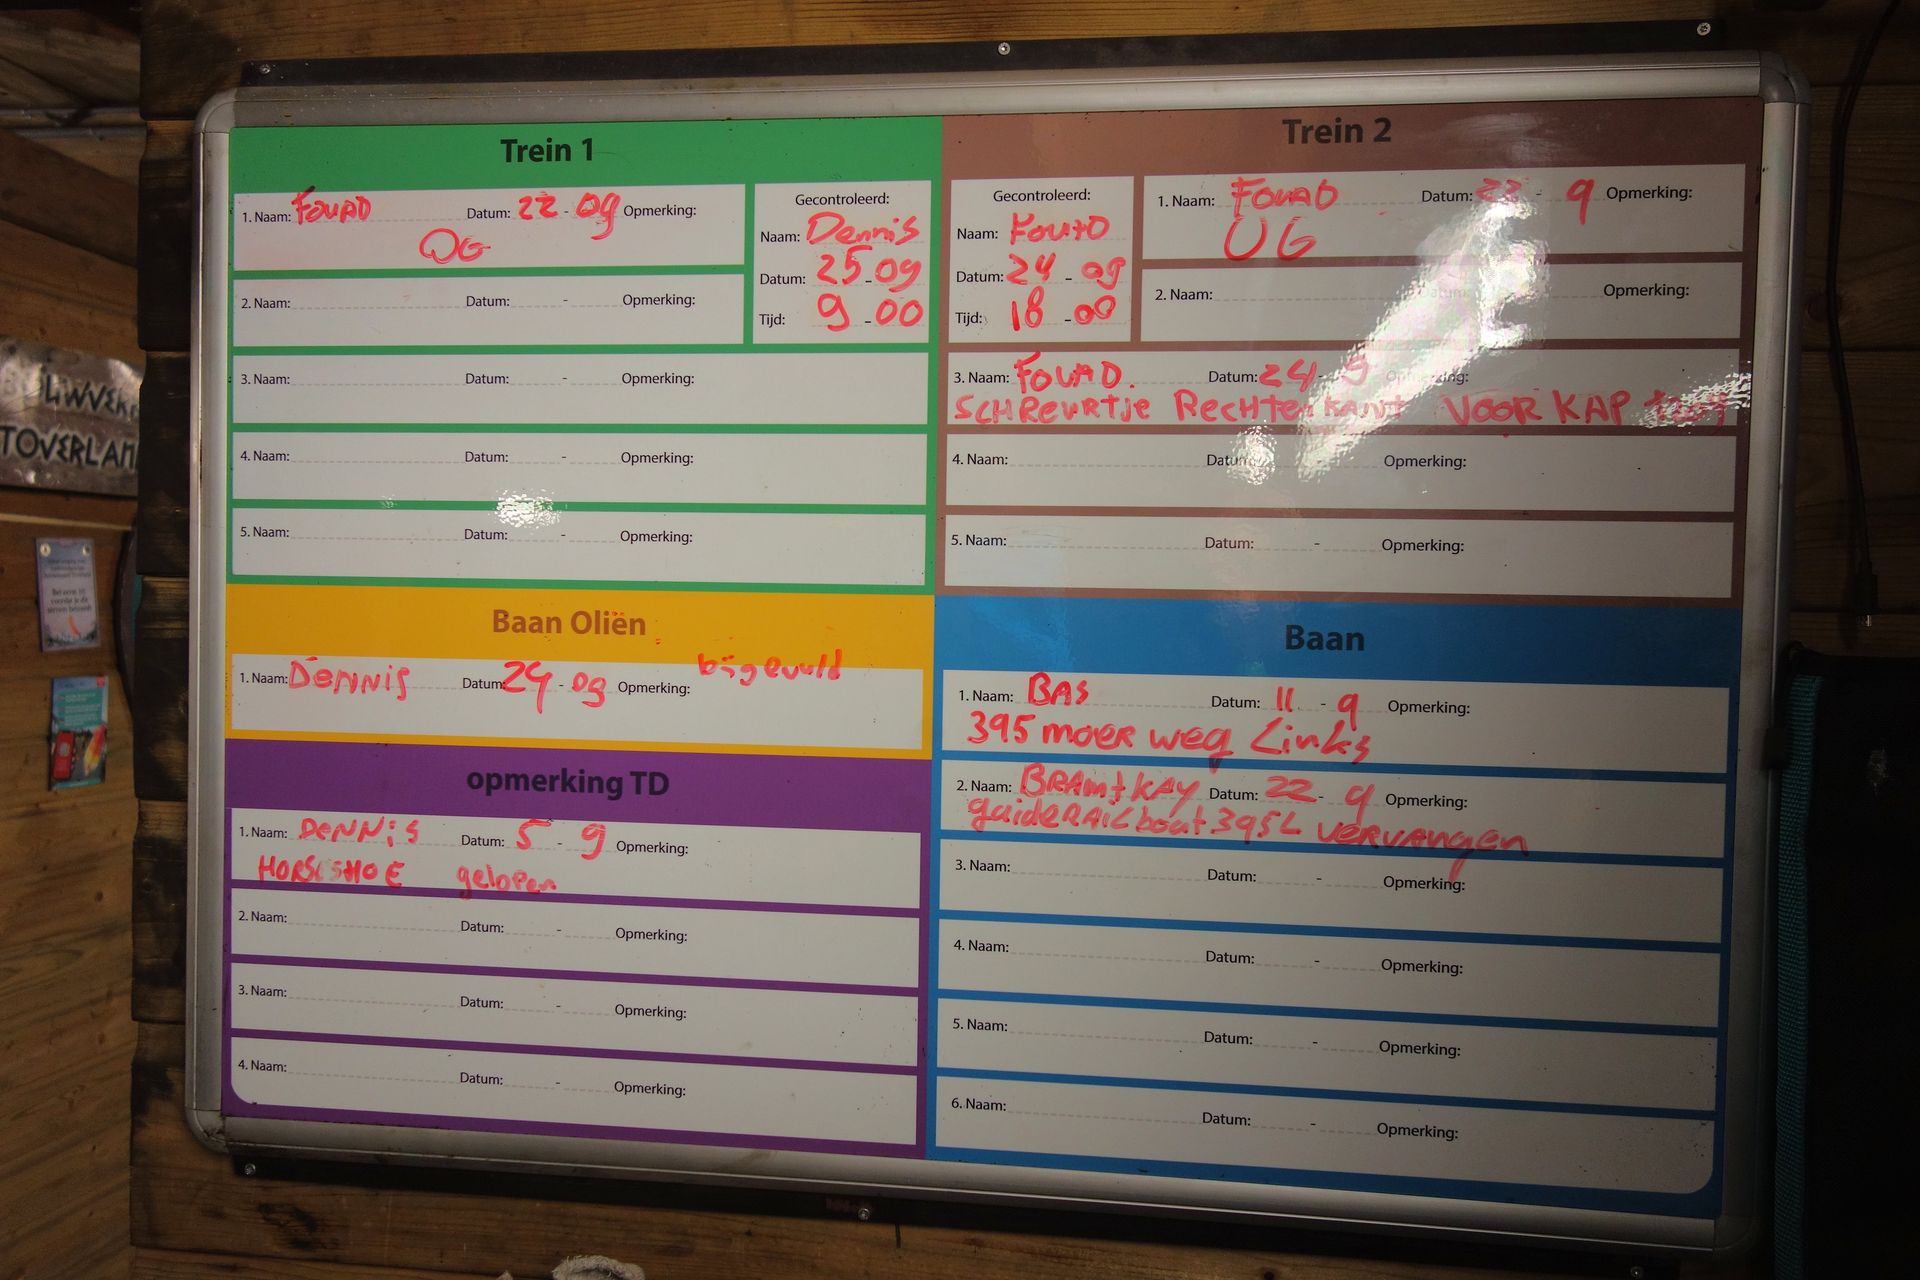 Trein 1
1. Naam: FOUAD Datum: 22 - 09 Opmerking:
OG
2. Naam: Datum: - Opmerking:
Gecontroleerd:
Naam: Dennis
Datum: 25 - 09
Tijd: 9 - 00
3. Naam: Datum: - Opmerking:
4. Naam: Datum: - Opmerking:
5. Naam: Datum: - Opmerking:
Trein 2
Gecontroleerd:
Naam: FOUAD
Datum: 24 - 09
Tijd: 18 - 00
1. Naam: FOUAD Datum: 22 - 9 Opmerking:
UG
2. Naam: Datum: Opmerking:
3. Naam: FOUAD. Datum: 24 - 9 Opmerking:
SCHREURTJE RECHTERKANT VOOR KAP
4. Naam: Datum: Opmerking:
5. Naam: Datum: - Opmerking:
Baan Oliën
1. Naam: DENNIS Datum: 24 - 09 Opmerking: bijgevuld
opmerking TD
1. Naam: DENNIS Datum: 5 - 9 Opmerking:
HORSESHOE gelopen
2. Naam: Datum: - Opmerking:
3. Naam: Datum: - Opmerking:
4. Naam: Datum: - Opmerking:
Baan
1. Naam: BAS Datum: 11 - 9 Opmerking:
395 moer weg Links
2. Naam: BRAM+KAY Datum: 22 - 9 Opmerking:
guideRAIL bout 395L vervangen
3. Naam: Datum: - Opmerking:
4. Naam: Datum: - Opmerking:
5. Naam: Datum: - Opmerking:
6. Naam: Datum: - Opmerking:
TOVERLAN